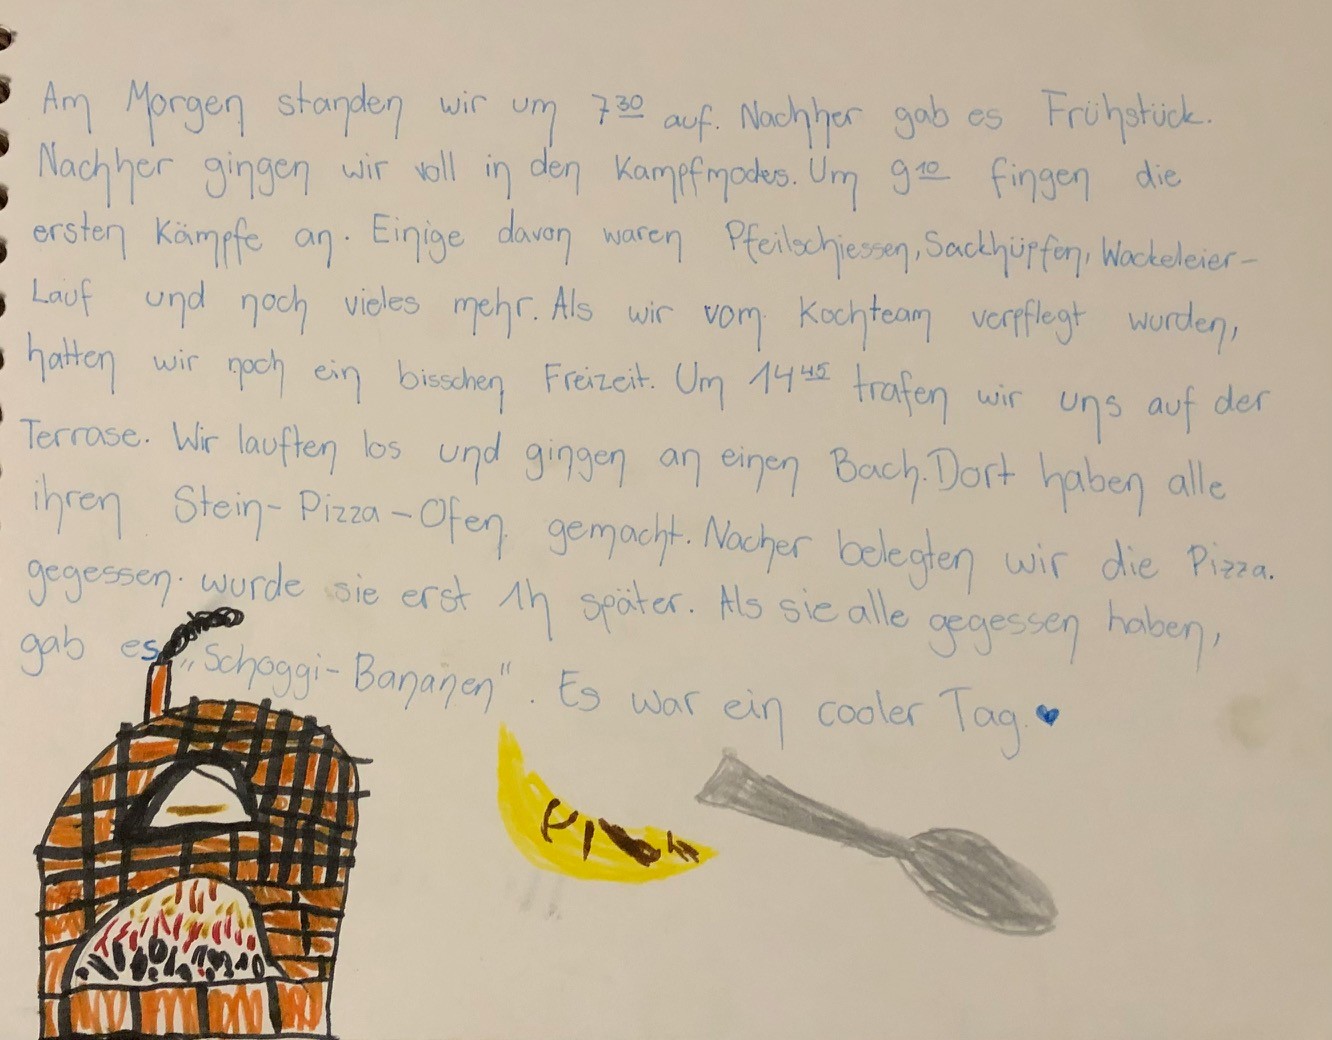 Am Morgen standen wir um 7³⁰ auf. Nachher gab es Frühstück.
Nachher gingen wir voll in den Kampfmodes. Um 9¹⁰ fingen die
ersten Kämpfe an. Einige davon waren Pfeilschiessen, Sackhüpfen, Wackeleier-
Lauf und noch vieles mehr. Als wir vom Kochteam verpflegt wurden,
hatten wir noch ein bisschen Freizeit. Um 14⁴⁵ trafen wir uns auf der
Terrase. Wir lauften los und gingen an einen Bach. Dort haben alle
ihren Stein-Pizza-Ofen gemacht. Nacher belegten wir die Pizza.
gegessen. wurde sie erst 1h später. Als sie alle gegessen haben,
gab es „Schoggi-Bananen". Es war ein cooler Tag.♥